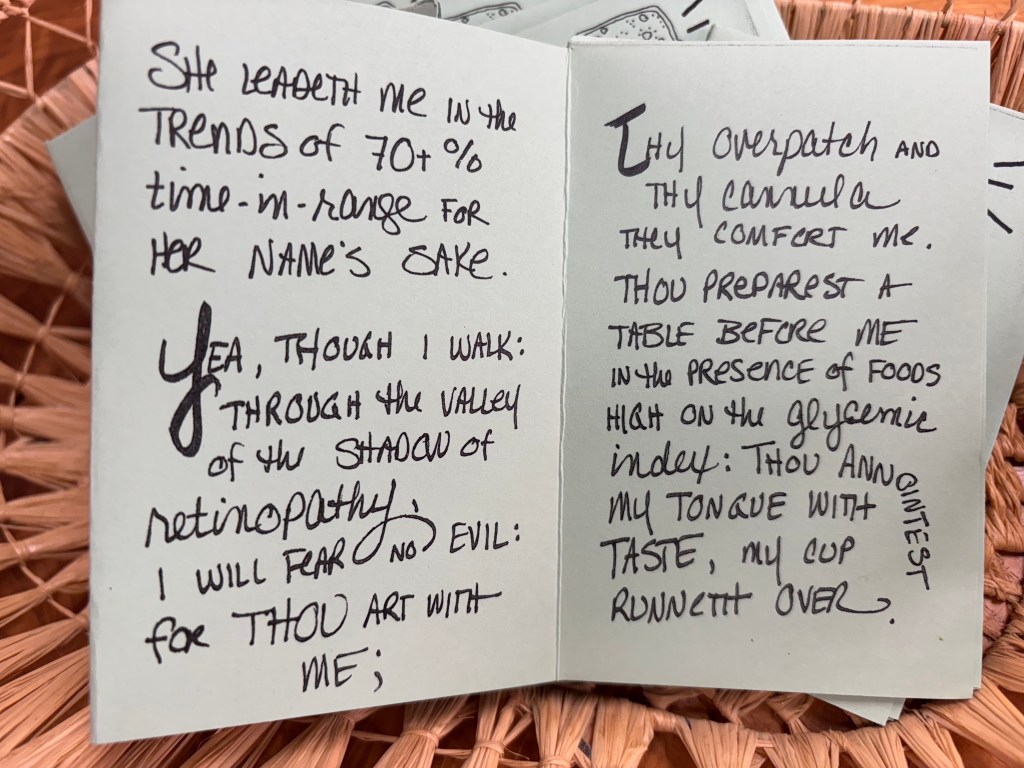 SHE LEADETH ME IN the
TRENDS of 70+ %
time-in-range FOR
HER NAME'S SAKE.
YEA, THOUGH I WALK:
THROUGH the VALLEY
of the SHADOW of
retinopathy,
I WILL FEAR NO EVIL:
for THOU ART WITH
ME;
THY overpatch AND
THY cannula
THEY COMFORT ME.
THOU PREPAREST A
TABLE BEFORE ME
IN the PRESENCE of FOODS
HIGH ON the glycemic
index: THOU ANNOINTEST
MY TONGUE WITH
TASTE, MY CUP
RUNNETH OVER.